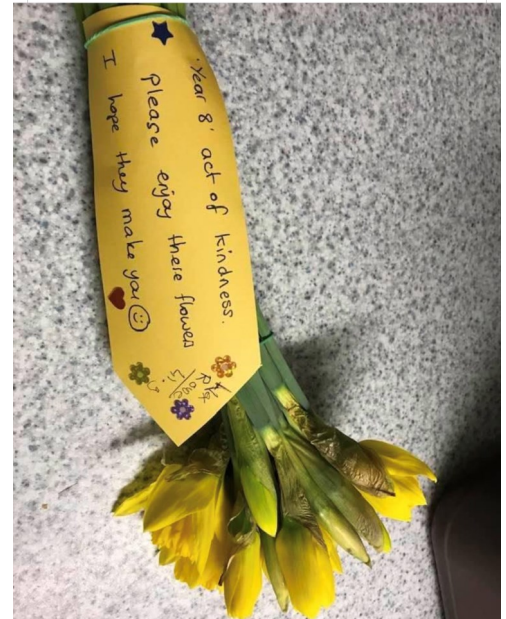 'Year 8' act of kindness.
Please enjoy these flowers
I hope they make you